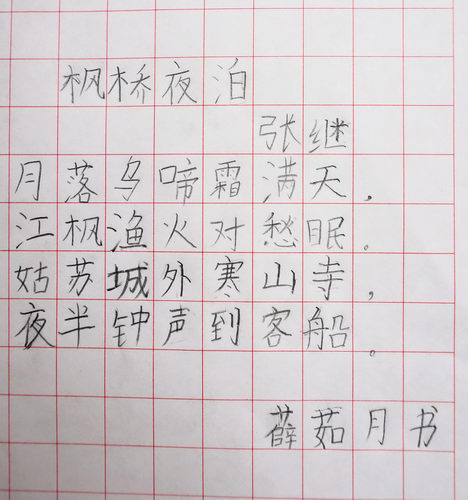 枫桥夜泊
张继
月落乌啼霜满天，
江枫渔火对愁眠。
姑苏城外寒山寺，
夜半钟声到客船。
薛茹月书